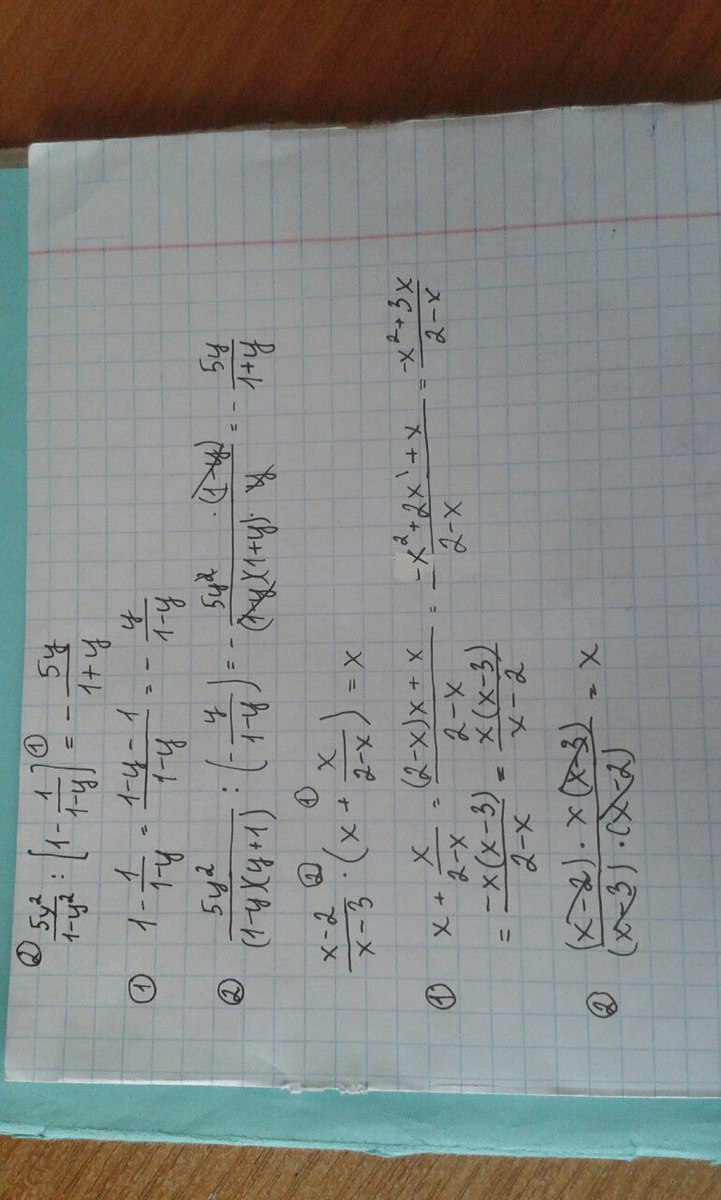 ② 5y²/(1-y²) : [1 - 1/(1-y)] ① = - 5y/(1+y)
① 1 - 1/(1-y) = (1-y-1)/(1-y) = - y/(1-y)
② 5y²/((1-y)(y+1)) : (- y/(1-y)) = - (5y² · (1-y))/((1-y)(1+y) · y) = - 5y/(1+y)
(x-2)/(x-3) ② · (x + ① x/(2-x)) = x
① x + x/(2-x) = ((2-x)x + x)/(2-x) = (-x² + 2x + x)/(2-x) = (-x² + 3x)/(2-x)
= (-x(x-3))/(2-x) = (x(x-3))/(x-2)
② ((x-2) · x(x-3))/((x-3) · (x-2)) = x